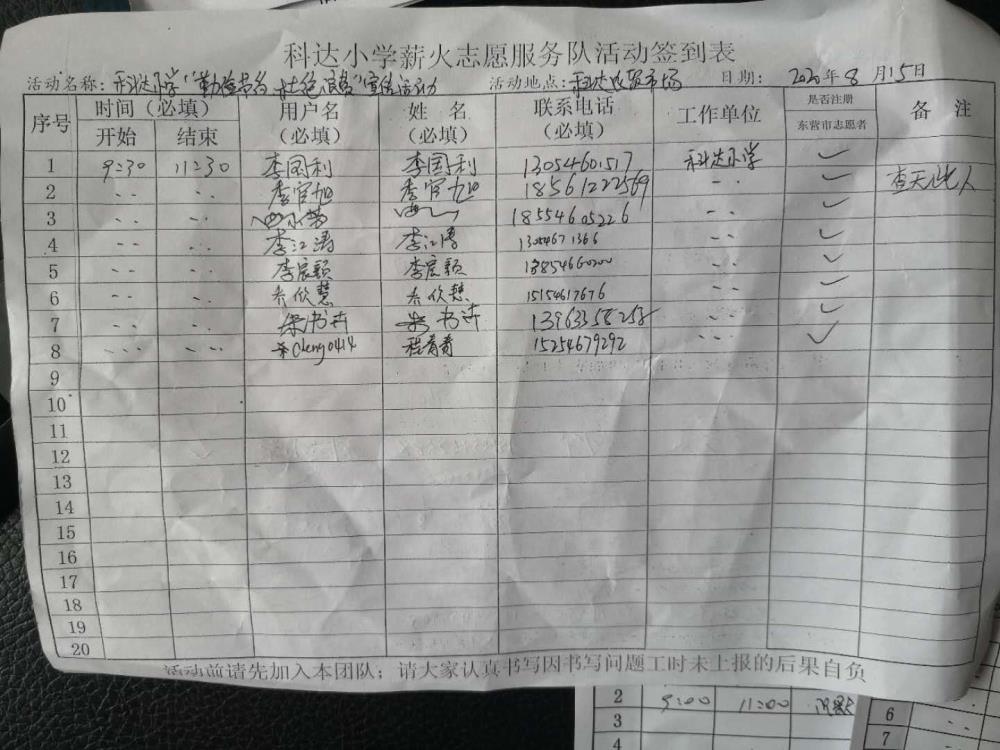 科达小学薪火志愿服务队活动签到表
活动名称：科达小学"勤俭节约 杜绝浪费"宣传活动 活动地点：科达农贸市场 日期： 2020年8月15日
序号 时间（必填） 用户名（必填） 姓 名（必填） 联系电话（必填） 工作单位 是否注册东营市志愿者 备 注
开始 结束
1 9:30 11:30 李国利 李国利 13054601517 科达小学 ✓
2 ·· ·· 李官旭 李官旭 18561222569 ·· ✓ 查无此人
3 ·· ·· 18554605226 ·· ✓
4 ·· ·· 李江涛 李江涛 13054671366 ·· ✓
5 ·· ·· 李宸颖 李宸颖 ·· ✓
6 ·· ·· 欣慧 欣慧 15154617676 ·· ✓
7 ·· ·· 书卉 书卉 13963358258 ·· ✓
8 ·· ·· cheng0414 程青青 15254679292 ·· ✓
9
10
11
12
13
14
15
16
17
18
19
20
活动前请先加入本团队；请大家认真书写因书写问题工时未上报的后果自负
2 9:00 11:00
3
4
6
7